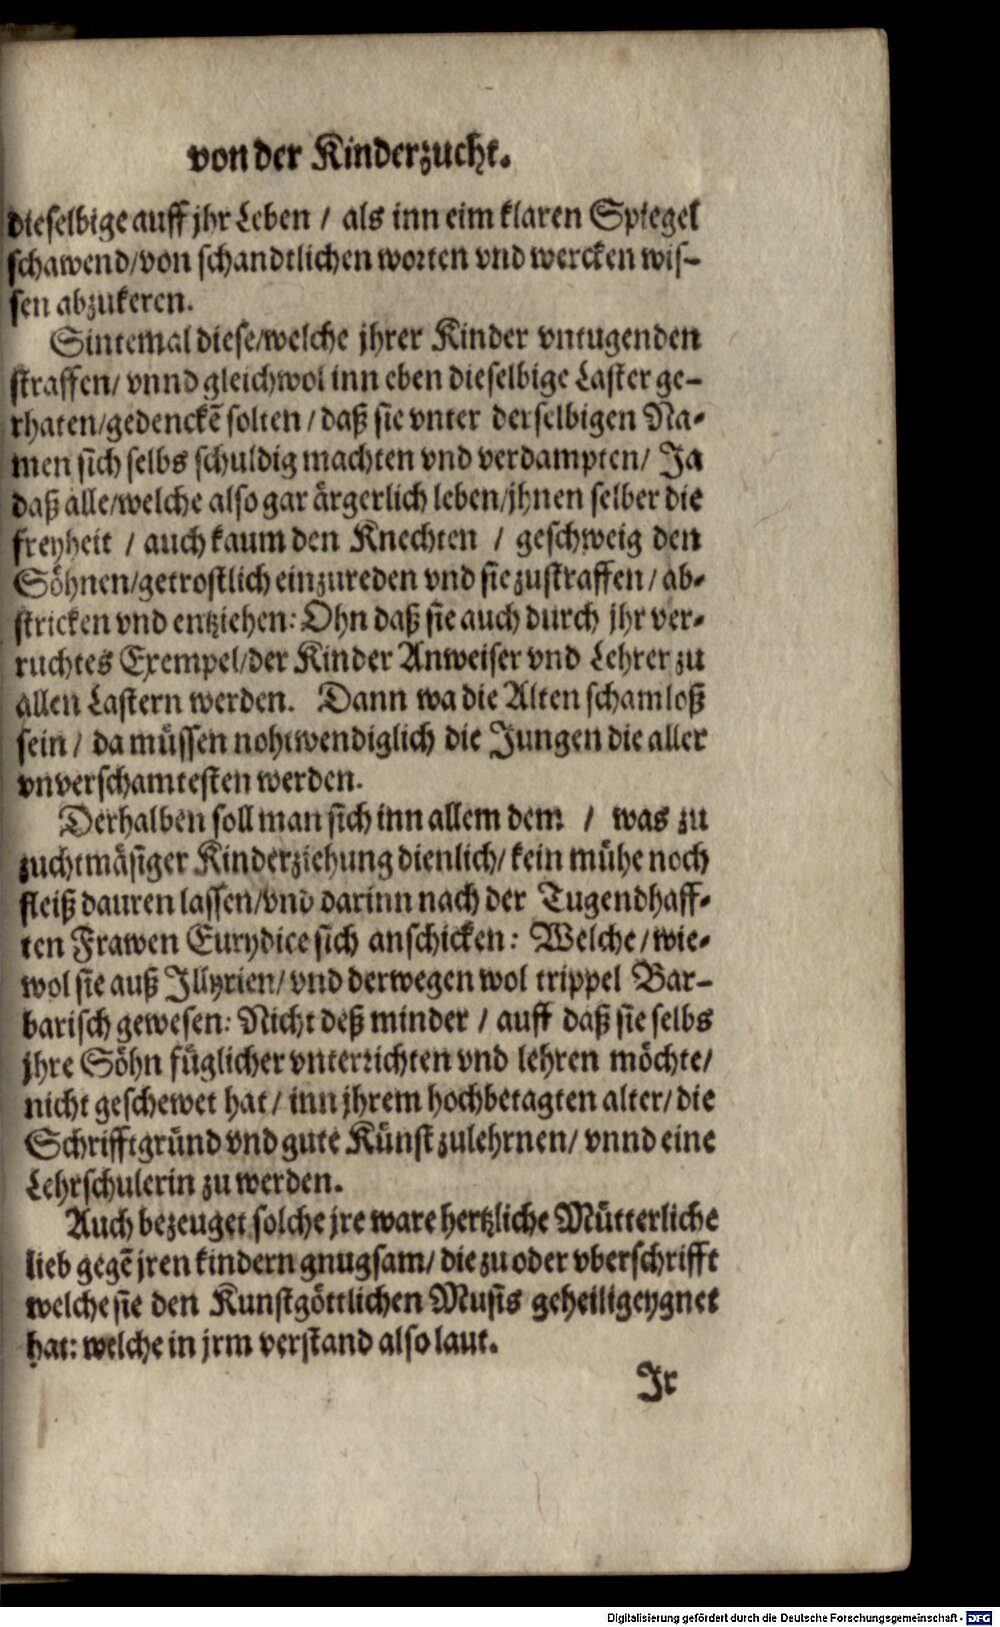 von der Kinderzucht.
dieselbige auff jhr Leben / als inn eim klaren Spiegel
schawend/von schandtlichen worten vnd wercken wis-
sen abzukeren.
Sintemal diese/welche jhrer Kinder vntugenden
straffen/ vnnd gleichwol inn eben dieselbige Laster ge-
rhaten/gedenckẽ solten / daß sie vnter derselbigen Na-
men sich selbs schuldig machten vnd verdampten/ Ja
daß alle/welche also gar ärgerlich leben/jhnen selber die
freyheit / auch kaum den Knechten / geschweig den
Söhnen/getrostlich einzureden vnd sie zustraffen / ab-
stricken vnd entziehen: Ohn daß sie auch durch jhr ver-
ruchtes Exempel/der Kinder Anweiser vnd Lehrer zu
allen Lastern werden. Dann wa die Alten schamloß
sein / da müssen nohtwendiglich die Jungen die aller
vnverschamtesten werden.
Derhalben soll man sich inn allem dem / was zu
zuchtmäsiger Kinderziehung dienlich/ kein mühe noch
fleiß dauren lassen/vnd darinn nach der Tugendhaff-
ten Frawen Eurydice sich anschicken: Welche/wie-
wol sie auß Illyrien/ vnd derwegen wol trippel Bar-
barisch gewesen: Nicht deß minder / auff daß sie selbs
jhre Söhn füglicher vnterrichten vnd lehren möchte/
nicht geschewet hat/ inn jhrem hochbetagten alter/ die
Schrifftgründ vnd gute Künst zulehrnen/ vnnd eine
Lehrschulerin zu werden.
Auch bezeuget solche jre ware hertzliche Mütterliche
lieb gegẽ jren kindern gnugsam/ die zu oder vberschrifft
welche sie den Kunstgöttlichen Musis geheiligeygnet
hat: welche in jrm verstand also laut.
Jr
Digitalisierung gefördert durch die Deutsche Forschungsgemeinschaft - DFG